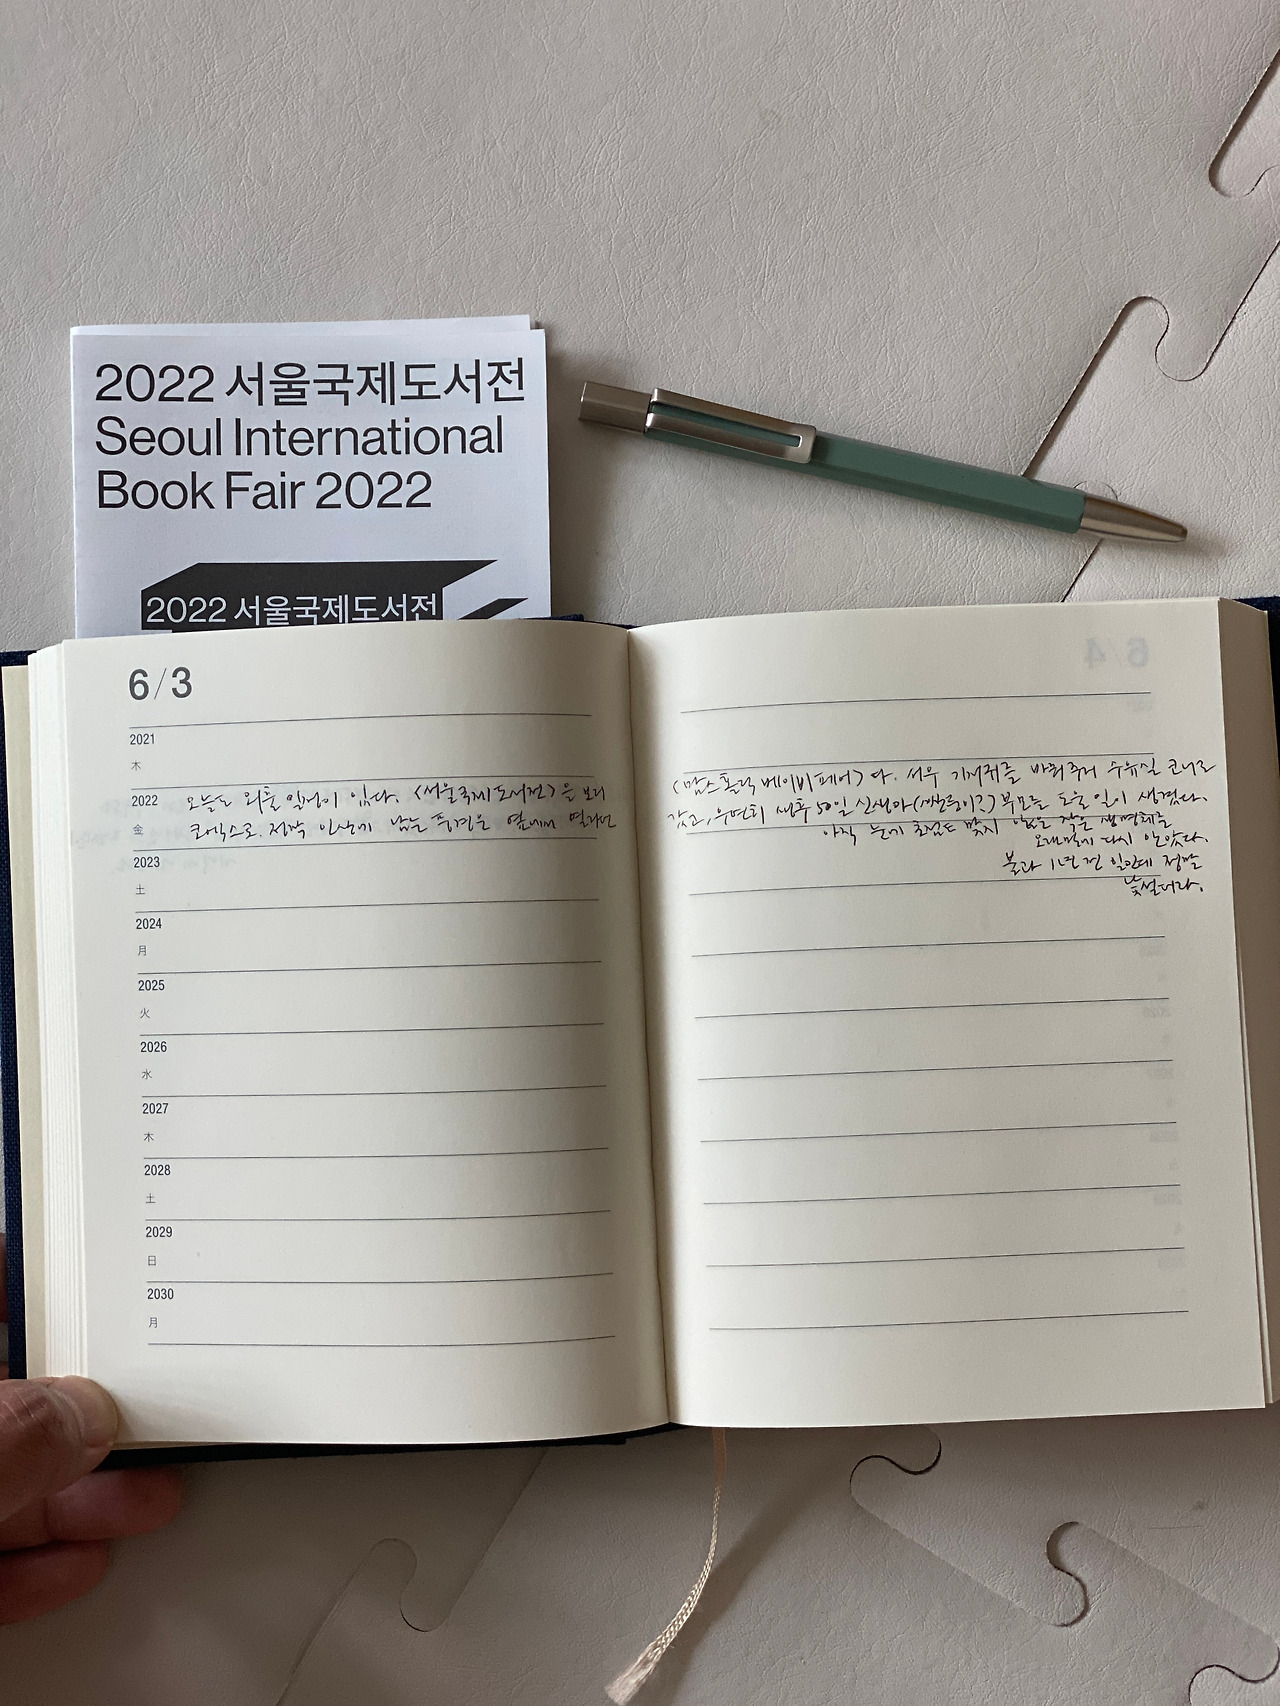 2022 서울국제도서전
Seoul International
Book Fair 2022
2022 서울국제도서전
6/3
2021
木
2022 오늘도 외출 일정이 있다. <서울국제도서전>을 보러
金 코엑스로. 정작 인상에 남는 풍경은 옆에서 열리던
2023
土
2024
月
2025
火
2026
水
2027
木
2028
土
2029
日
2030
月
6/4
<맘스홀릭 베이비페어>다. 서우 기저귀를 바꿔주러 수유실 코너로
갔고, 우연히 생후 50일 신생아 부모를 도울 일이 생겼다.
아직 눈에 초점도 맞지 않는 작은 생명체를
오랜만에 다시 안았다.
불과 1년 전 일인데 정말
낯설더라.